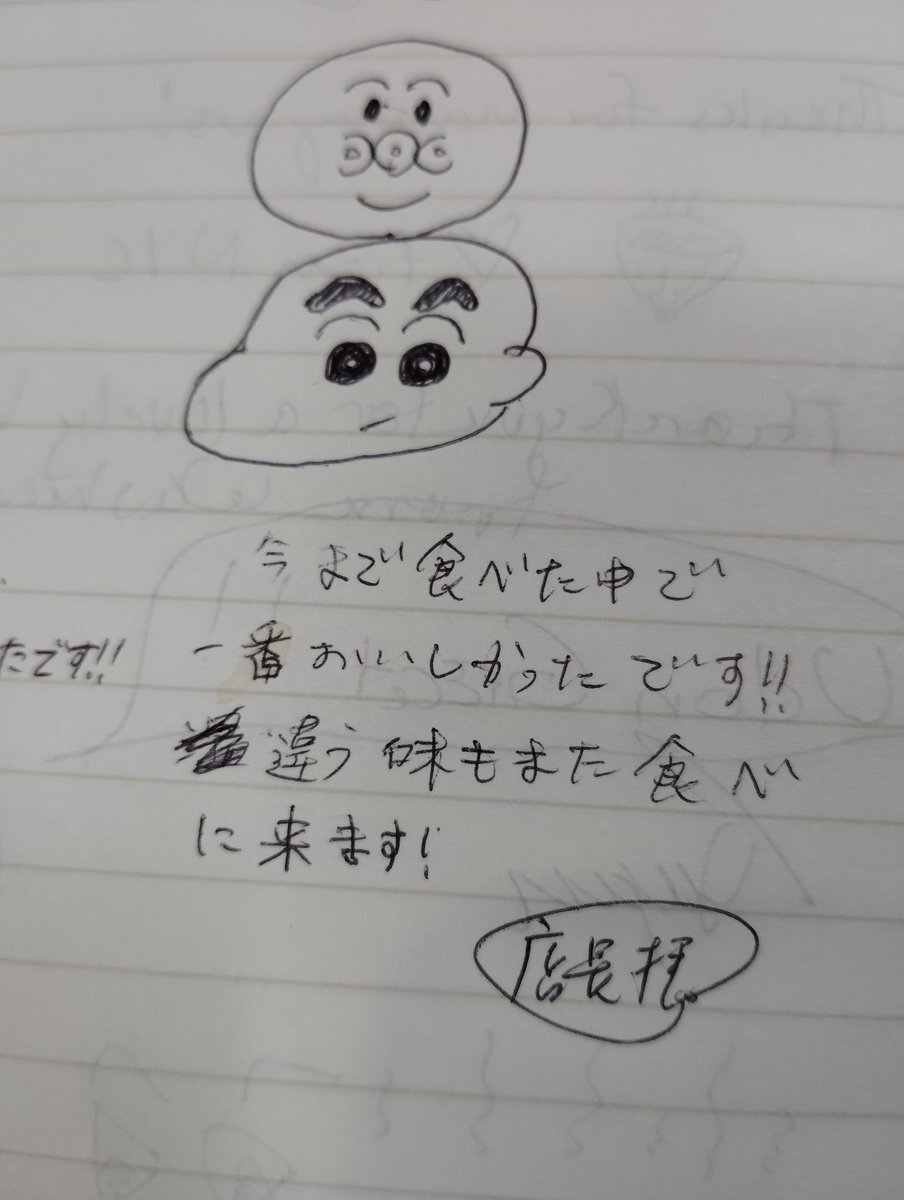 今まで食べた中で
一番おいしかったです!!
違う味もまた食べ
に来ます!
店長拝
たです!!